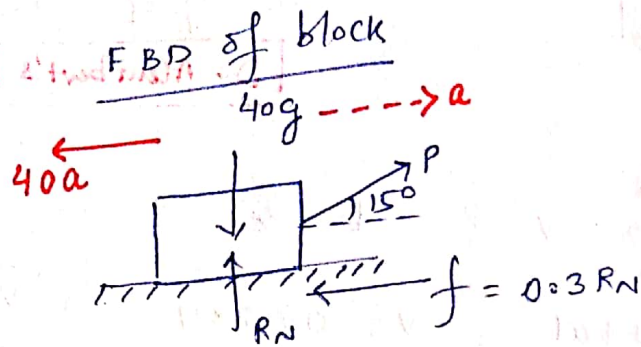 FBD of block
40g a
40a
P
15°
RN
f = 0.3 RN